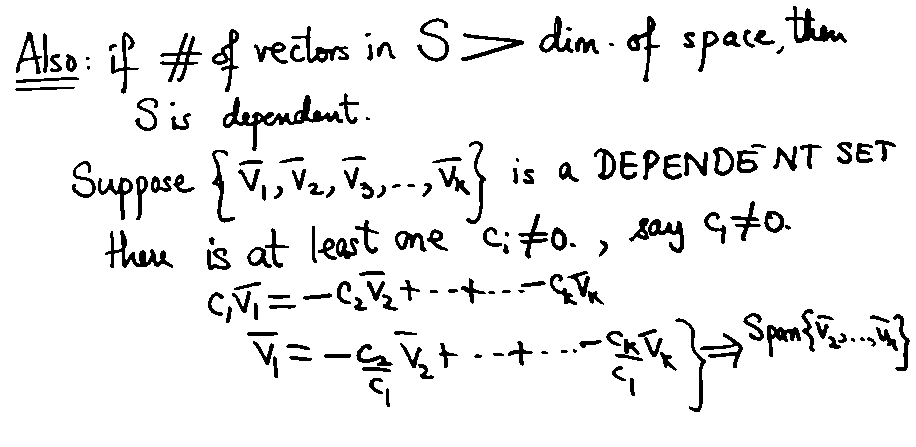 Also: if # of vectors in S > dim. of space, then
S is dependent.
Suppose {v̅₁, v̅₂, v̅₃, .., v̅ₖ} is a DEPENDENT SET
there is at least one cᵢ≠0. , say c₁≠0.
c₁v̅₁ = -c₂v̅₂ + --+... -cₖv̅ₖ
v̅₁ = -c₂/c₁ v̅₂ + --+... -cₖ/c₁ v̅ₖ} ⇒ Span{v̅₂,...,v̅ₖ}